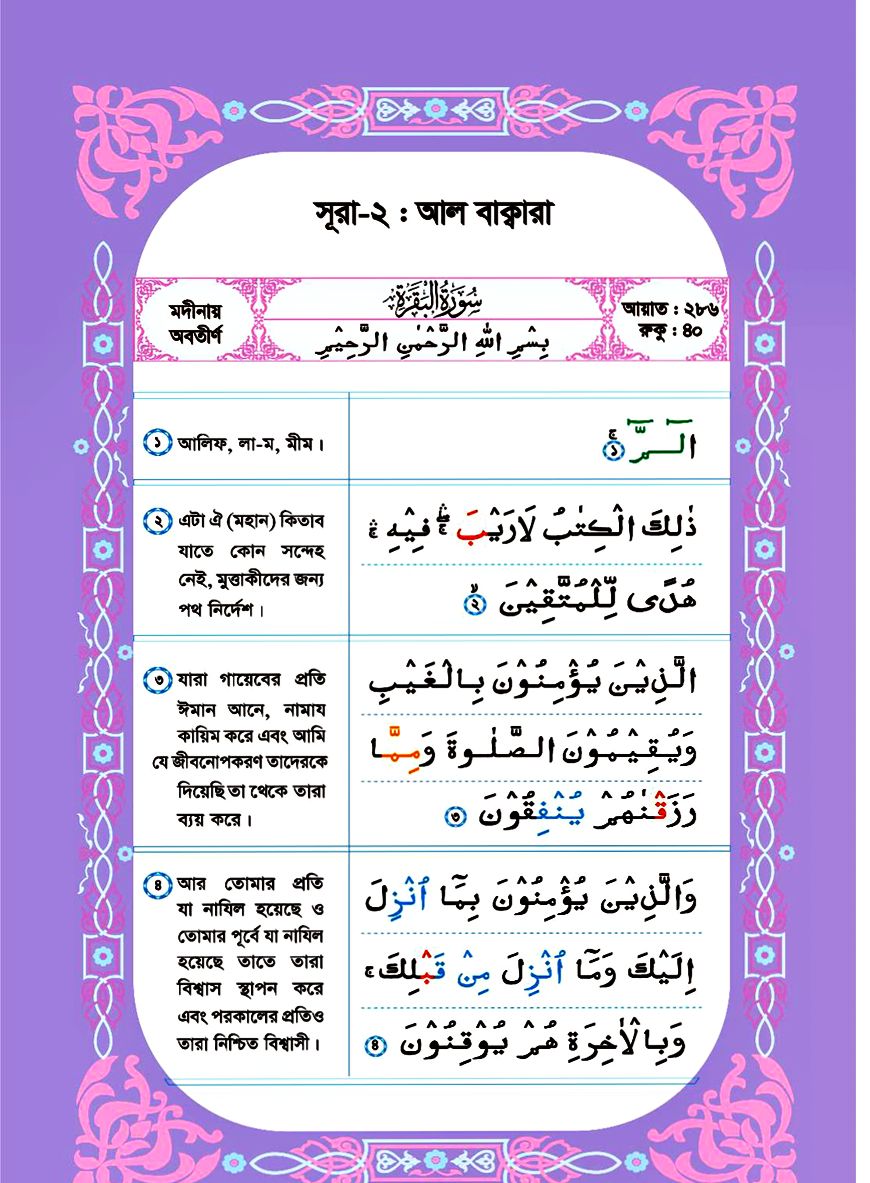 সূরা-২ : আল বাক্বারা
মদীনায়
অবতীর্ণ
سُوْرَةُ الْبَقَرَةِ
بِسْمِ اللهِ الرَّحْمٰنِ الرَّحِيْمِ
আয়াত : ২৮৬
রুকু : ৪০
১ আলিফ, লা-ম, মীম।
الٓـمّٓ ۚ ১
২ এটা ঐ (মহান) কিতাব
যাতে কোন সন্দেহ
নেই, মুত্তাকীদের জন্য
পথ নির্দেশ।
ذٰلِكَ الْكِتٰبُ لَارَيْبَ ۛۖ فِيْهِ ۛۚ
هُدًى لِّلْمُتَّقِيْنَ ۙ ২
৩ যারা গায়েবের প্রতি
ঈমান আনে, নামায
কায়িম করে এবং আমি
যে জীবনোপকরণ তাদেরকে
দিয়েছি তা থেকে তারা
ব্যয় করে।
الَّذِيْنَ يُؤْمِنُوْنَ بِالْغَيْبِ
وَيُقِيْمُوْنَ الصَّلٰوةَ وَمِمَّا
رَزَقْنٰهُمْ يُنْفِقُوْنَ ৩
৪ আর তোমার প্রতি
যা নাযিল হয়েছে ও
তোমার পূর্বে যা নাযিল
হয়েছে তাতে তারা
বিশ্বাস স্থাপন করে
এবং পরকালের প্রতিও
তারা নিশ্চিত বিশ্বাসী।
وَالَّذِيْنَ يُؤْمِنُوْنَ بِمَآ اُنْزِلَ
اِلَيْكَ وَمَآ اُنْزِلَ مِنْ قَبْلِكَ ۚ
وَبِالْاٰخِرَةِ هُمْ يُوْقِنُوْنَ ৪